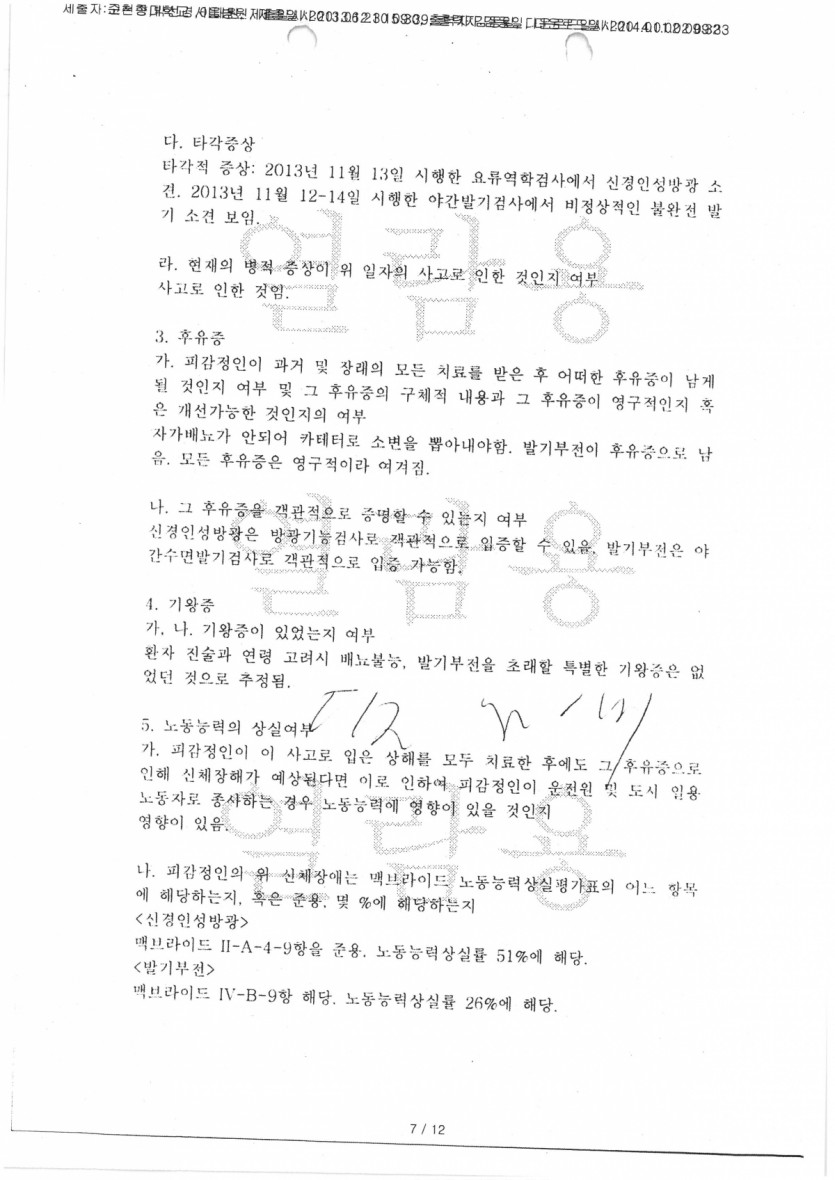 다. 타각증상
타각적 증상: 2013년 11월 13일 시행한 요류역학검사에서 신경인성방광 소
견. 2013년 11월 12-14일 시행한 야간발기검사에서 비정상적인 불완전 발
기 소견 보임.
열람용
라. 현재의 병적 증상이 위 일자의 사고로 인한 것인지 여부
사고로 인한 것임.
3. 후유증
가. 피감정인이 과거 및 장래의 모든 치료를 받은 후 어떠한 후유증이 남게
될 것인지 여부 및 그 후유증의 구체적 내용과 그 후유증이 영구적인지 혹
은 개선가능한 것인지의 여부
자가배뇨가 안되어 카테터로 소변을 뽑아내야함. 발기부전이 후유증으로 남
음. 모든 후유증은 영구적이라 여겨짐.
나. 그 후유증을 객관적으로 증명할 수 있는지 여부
신경인성방광은 방광기능검사로 객관적으로 입증할 수 있음. 발기부전은 야
간수면발기검사로 객관적으로 입증 가능함.
열람용
4. 기왕증
가, 나. 기왕증이 있었는지 여부
환자 진술과 연령 고려시 배뇨불능, 발기부전을 초래할 특별한 기왕증은 없
었던 것으로 추정됨.
5. 노동능력의 상실여부
가. 피감정인이 이 사고로 입은 상해를 모두 치료한 후에도 그 후유증으로
인해 신체장해가 예상된다면 이로 인하여 피감정인이 운전원 및 도시 일용
노동자로 종사하는 경우 노동능력에 영향이 있을 것인지
영향이 있음.
열람용
나. 피감정인의 위 신체장애는 맥브라이드 노동능력상실평가표의 어느 항목
에 해당하는지, 혹은 준용, 몇 %에 해당하는지
<신경인성방광>
맥브라이드 II-A-4-9항을 준용. 노동능력상실률 51%에 해당.
<발기부전>
맥브라이드 IV-B-9항 해당. 노동능력상실률 26%에 해당.
7 / 12